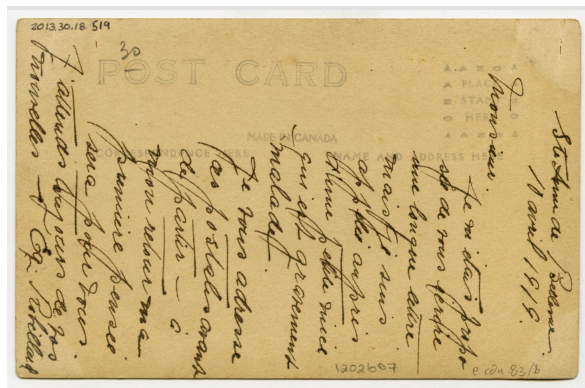 2013.30.18.519
30
POST CARD
PLACE
STAMP
HERE
MADE IN CANADA
CORRESPONDENCE HERE
NAME AND ADDRESS HERE
Ste Anne de
avril 1919.
Monsieur.
Je m'étais propo
sé de vous écrire
une longue lettre
mais je suis
appelée auprès
d'une petite nièce
qui est gravement
malade.
Je vous adresse
ces postales avant
de partir — à
mon retour ma
première pensée
sera pour vous.
J'attends toujours de vos
nouvelles Robillard
1202607